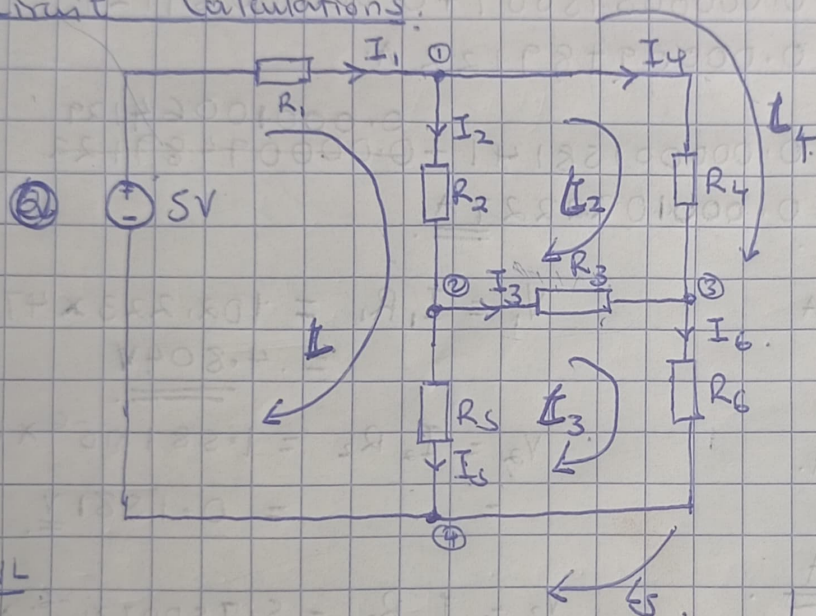 Calculations.
I₁ ① I₄
R₁
I₂
5V R₂ I₂ R₄ L₄
② I₃ R₃ ③
I₆
L R₅ I₃ R₆
I₅
④